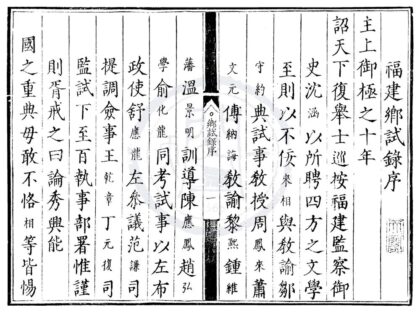 福建鄉試錄序
主上御極之十年
詔天下復舉士巡按福建監察御
史沈涵以所聘四方之文學
至則以不佞來相與教諭鄒
守約典試事教授周鳳來蕭
文元傅納誨教諭黎熙鍾維
鄉試錄序
一
藩溫景明訓導陳應鳳趙弘
學俞化龍同考試事以左布
政使舒應龍左參議范謙司
提調僉事王乾章丁元復司
監試下至百執事部署惟謹
則胥戒之曰論秀興能
國之重典毋敢不恪相等皆惕